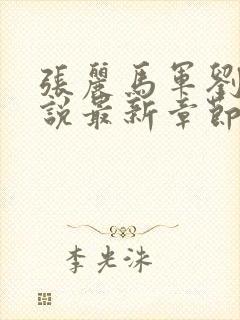 張麗馬軍劉
說最新章節
李光洙